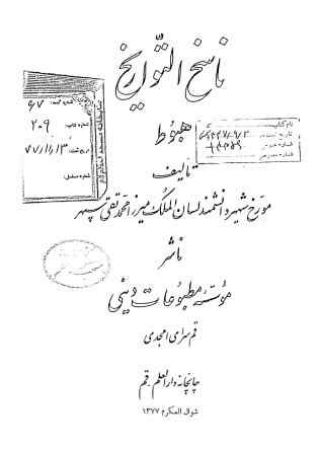 ناسخ التّواریخ
هبوط
تألیف
مورخ شهیر دانشمند لسان الملک میرزا محمد تقی سپهر
ناشر
مؤسسه مطبوعات دینی
قم سرای امجدی
چاپخانه دار العلم ـ قم
شوال المکرم ۱۳۷۷
۶۷
شماره کتاب:
۲۰۹
۷۷/۱/۱۳
شماره مسلسل: